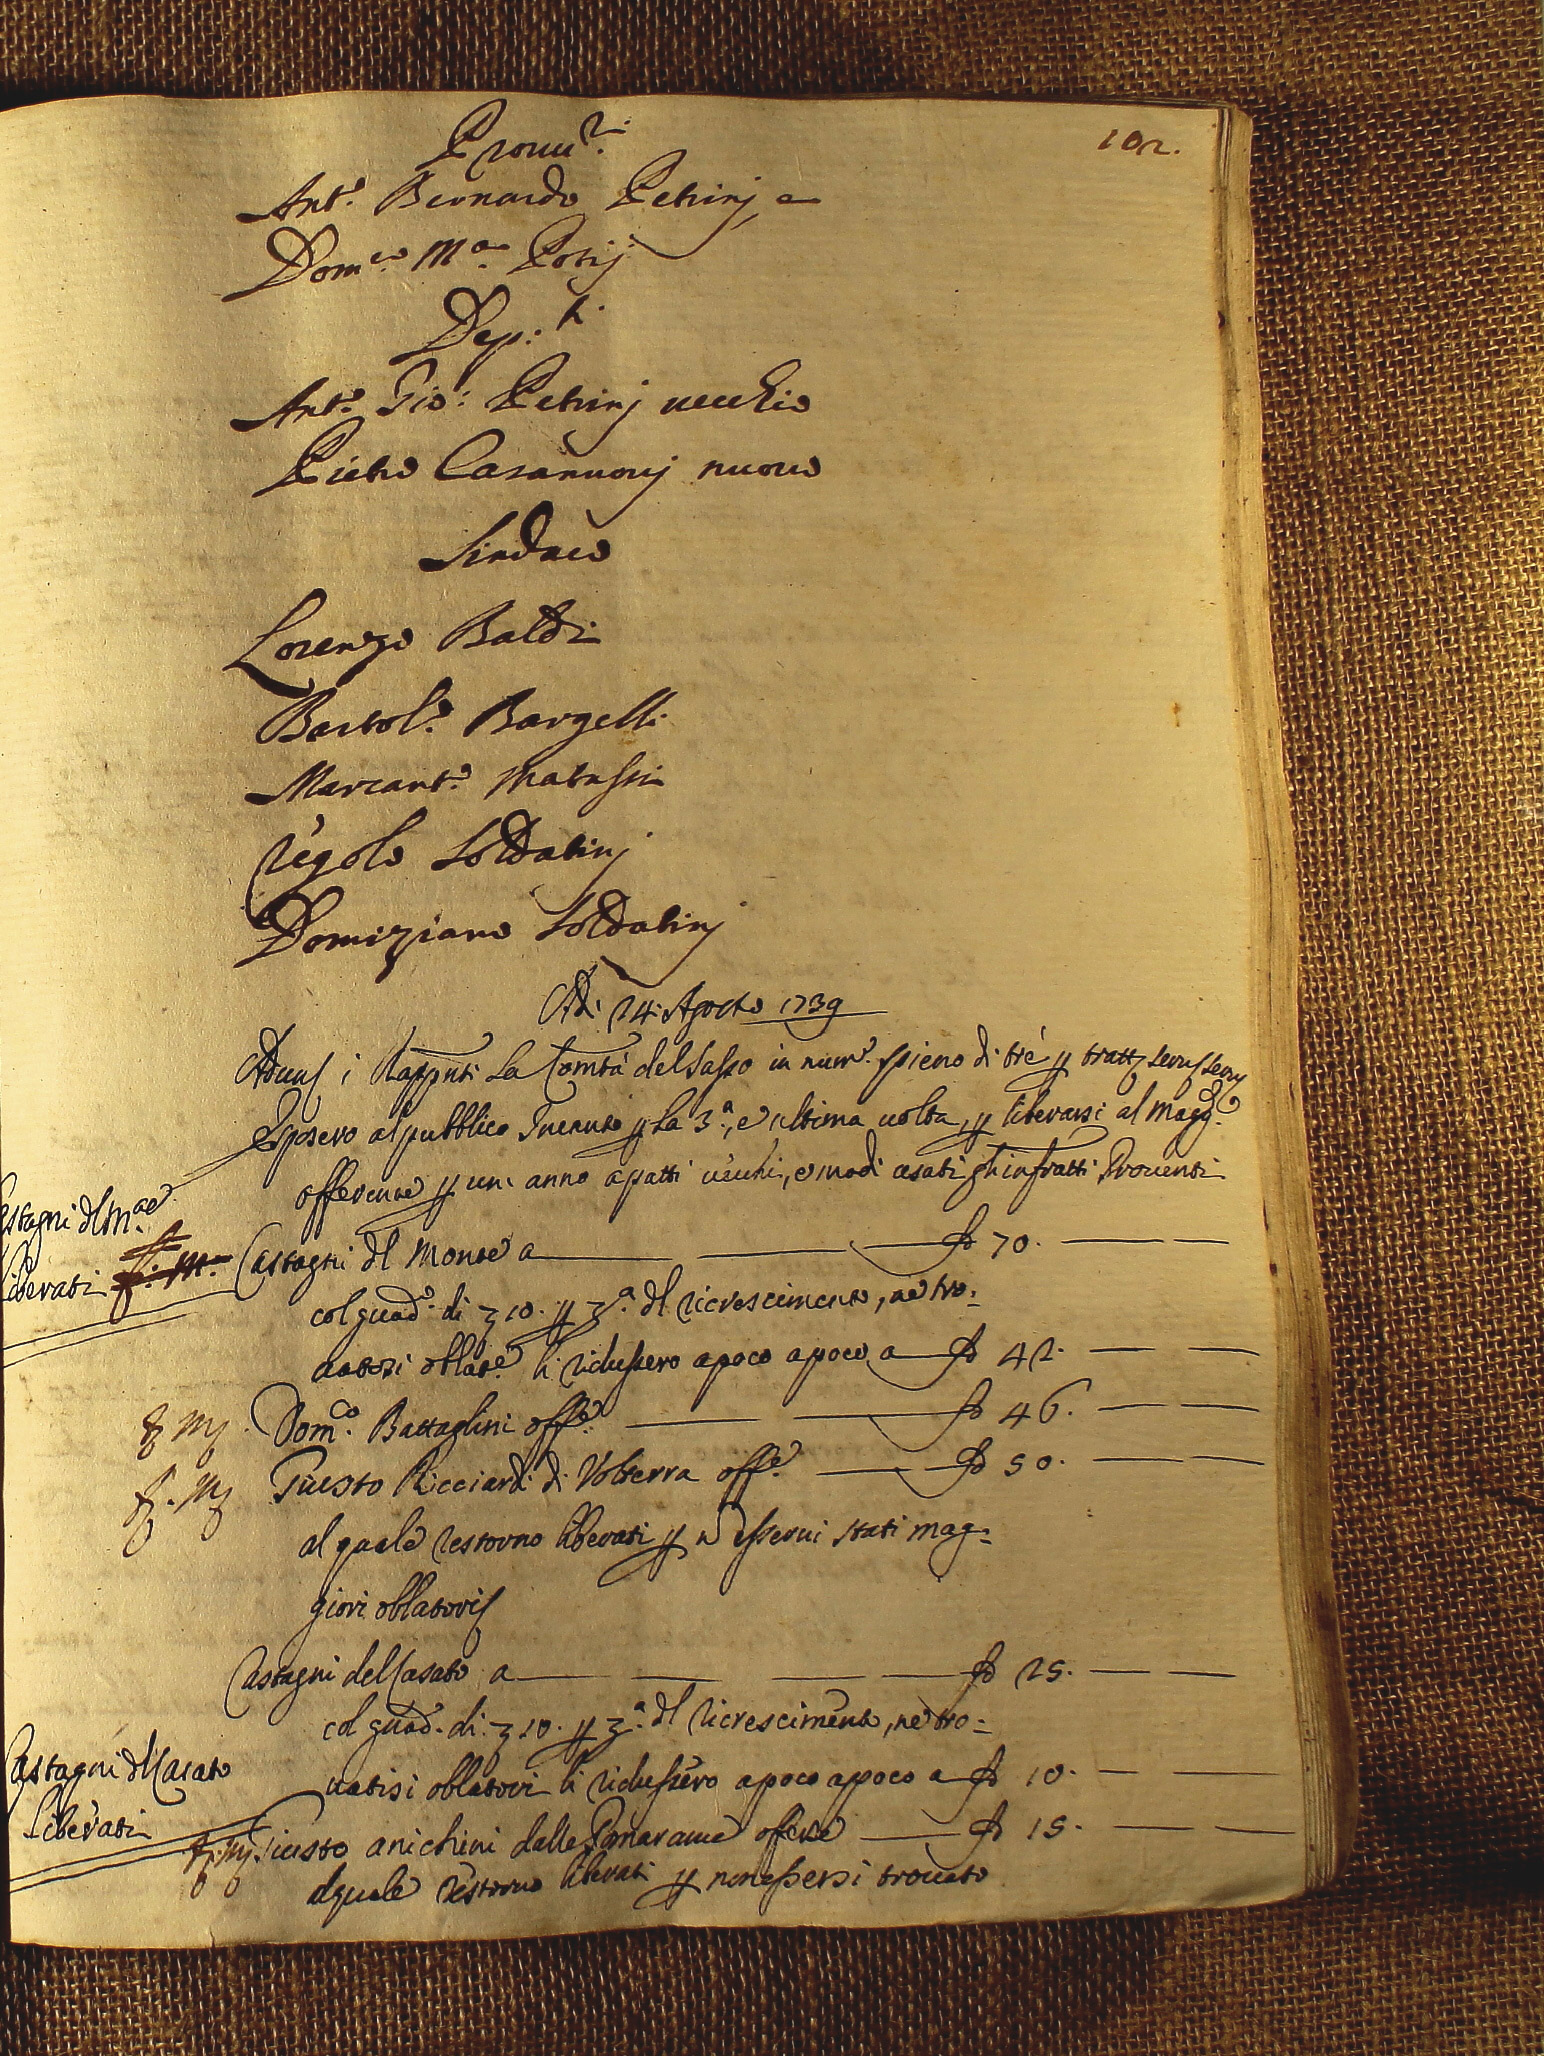 102.
Ant.o Bernardo Petrinj e
Dom.co M.a Potij
Dep.ti
Ant.o Gio: Petrinj vecchio
Pietro Casanuovj nuovo
Sindaco
Lorenzo Baldi
Bartol.o Bargelli
Marcant.o
Regolo Soldatinj
Domiziano Soldatinj
Adi 24. Agosto 1739
Adunj i Rapp.nti La Comtà del Sasso in num.o pieno di tré p tratt
Esposero al pubblico Incanto p La 3.a, e ultima volta, p liberarsi al magg.e
offerente p un' anno a patti vecchi, e modi usati gl'infratti Proventi
Castagni dl M.te
Liberati
Castagni dl Monte a 70.
col guad.o di 10. p dl ricrescimento, né tro=
vatosi oblat.e li ridussero a poco a poco a 42.
Dom.co Battaglini off.e 46.
Giusto Ricciardi di Volterra off.e 50.
al quale restorno liberati p n esservi stati mag=
giori oblatorij
Castagni del Casato a 25.
col guad.o di 10. p dl ricrescimento, né tro=
vatisi oblatori li ridussero a poco a poco a 10.
Castagni dl Casato
Liberati
Giusto Anichini dalle Pomarance offerse 15.
al quale restorno liberati p non essersi trovato